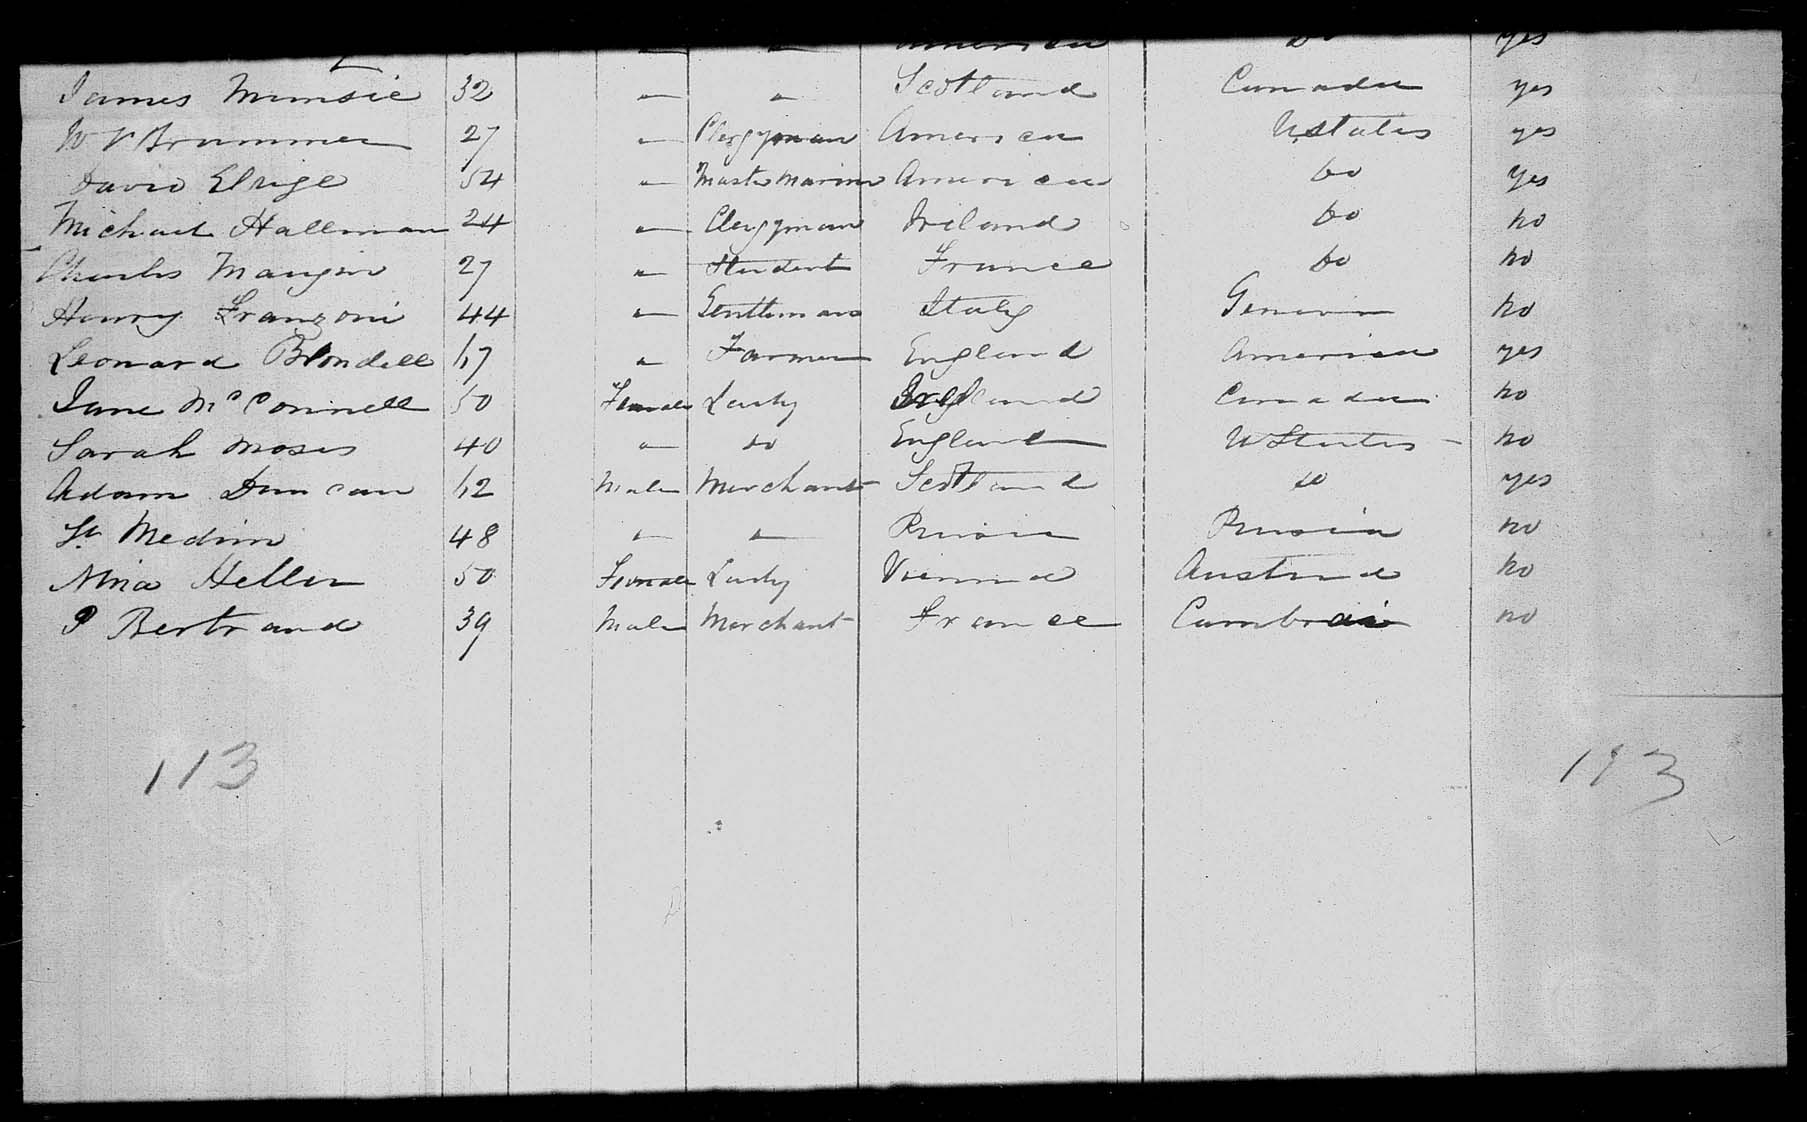 " " America do yes
James Mimsie 32 " " Scotland Canada yes
W V Brummer 27 " Clergyman America UStates yes
David Elrige 54 " Master Marine America do yes
Michael Halleman 24 " Clergyman Ireland do no
Charles Maugin 27 " Student France do no
Henry Franzoni 44 " Gentleman Italy Geneva no
Leonard Blondell 67 " Farmer England America yes
Jane McConnell 50 Female Lady England Canada no
Sarah Moses 40 " do England UStates no
Adam Duncan 62 Male Merchant Scotland do yes
St Medim 48 " " Prusia Prusia no
Nina Heller 50 Female Lady Vienna Austria no
P Bertrand 39 Male Merchant France Cambrai no
113 113